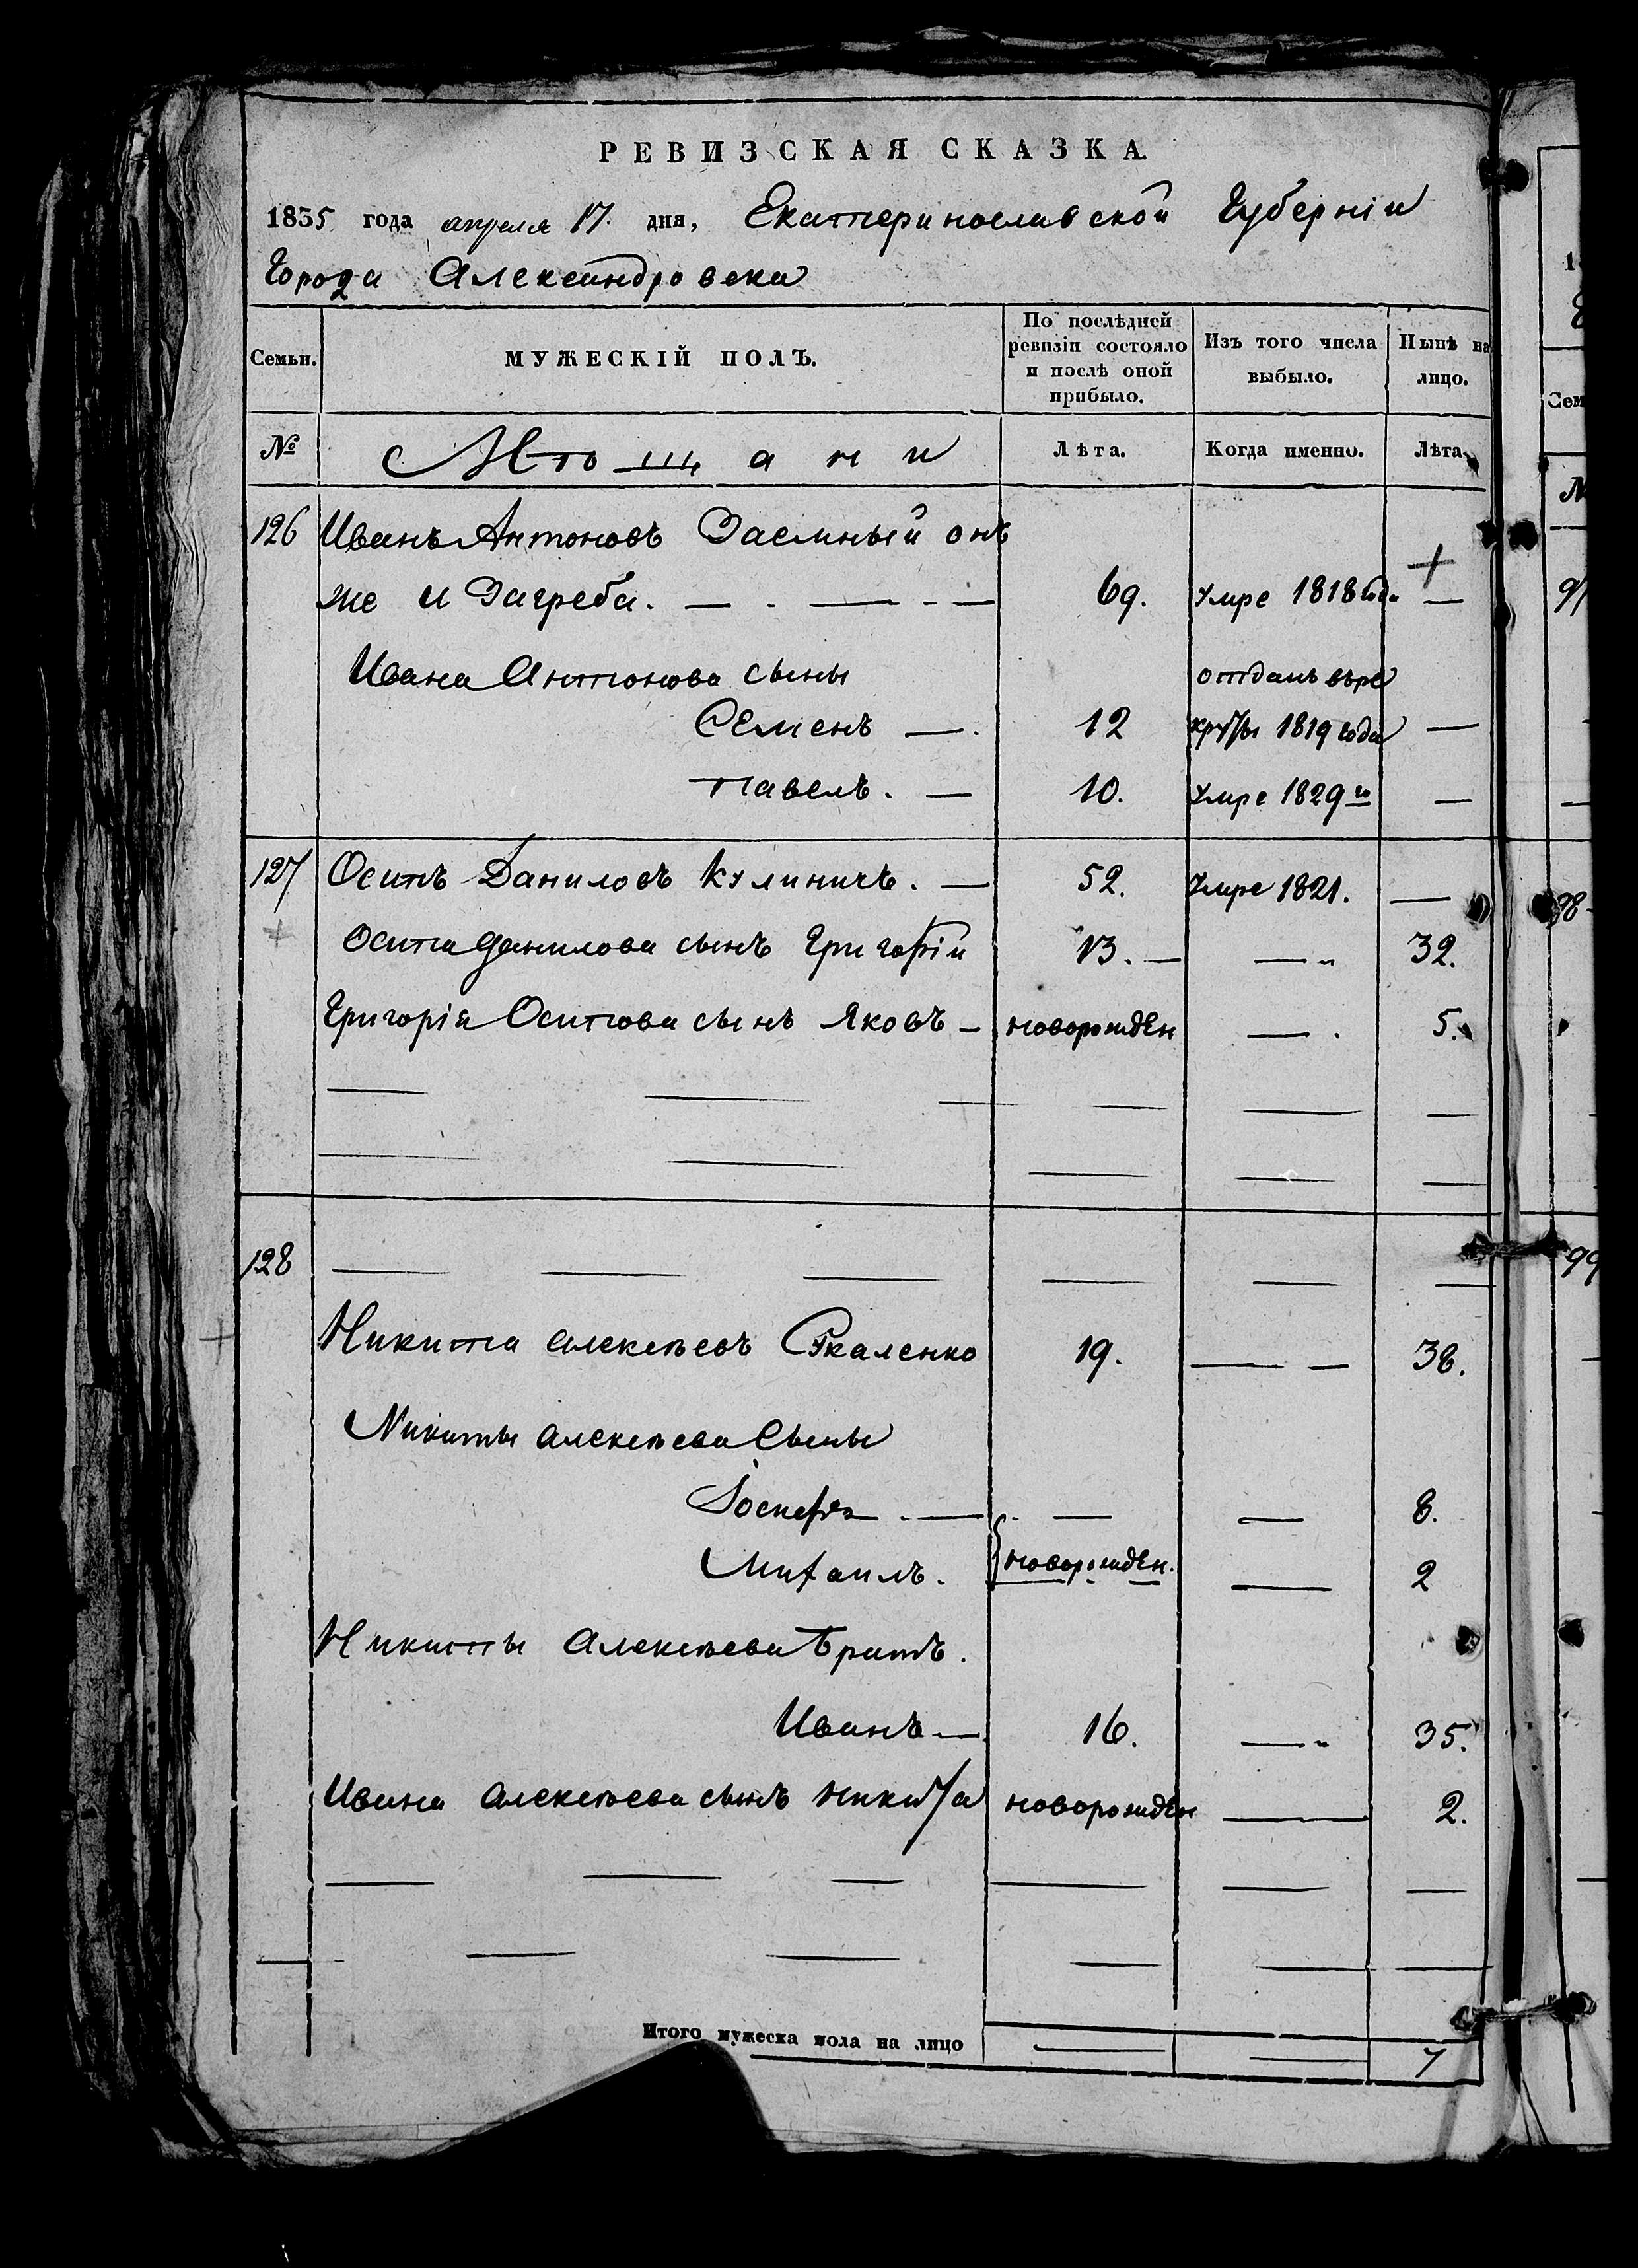 РЕВИЗСКАЯ СКАЗКА.
1835 года апреля 17. дня, Екатеринославской Губерніи
Города Александровска
Семьи. МУЖЕСКІЙ ПОЛЪ. По послѣдней ревизіи состояло и послѣ оной прибыло. Изъ того числа выбыло. Нынѣ на лицо.
№ Мѣщани Лѣта. Когда именно. Лѣта
126 Иванъ Антоновъ Заемный онъ
же и Загреба. 69. умре 1818 года —
Ивана Антонова сыны отданъ въ ре
Семенъ — 12 круты 1819 года —
Павелъ. — 10. умре 1829 го —
127 Осипъ Даниловъ Кулиничъ. — 52. умре 1821. —
Осипа Данилова сынъ Григорій 13. — — 32.
Григорія Осипова сынъ Яковъ — новорожден — 5.
128
Никита Алексѣевъ Скаленко 19. — 38.
Никиты Алексѣева Сыны
Іосифъ — — — 8.
Михаилъ. новорожден. — 2
Никиты Алексѣева братъ.
Иванъ — 16. — 35.
Ивана Алексѣева сынъ Никита новорожден — 2.
Итого мужеска пола на лицо — — 7
98
99